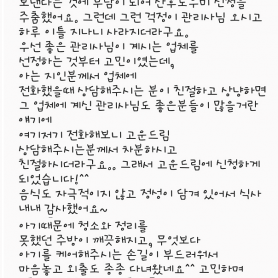 보낸다는 것에 부담이 되어 산후도우미 신청을
주춤했어요. 그런데 그런 걱정이 관리사님 오시고
하루 이틀 지나니 사라지더라구요.
우선 좋은 관리사님이 계시는 업체를
선정하는 것부터 고민이였는데,
아는 지인분께서 업체에
전화했을때 상담해주시는 분이 친절하고 상냥하면
그 업체에 계신 관리사님도 좋은분들이 많을거란
얘기에
여기저기 전화해보니 고운드림
상담해주시는분께서 차분하시고
친절하시더라구요.. 그래서 고운드림에 신청하게
되었습니다!^^
음식도 자극적이지 않고 정성이 담겨 있어서 식사
내내 감사했어요~
아기때문에 청소와 정리를
못했던 주방이 깨끗해지고, 무엇보다
아기를 케어해주시는 손길이 부드러워서
마음놓고 외출도 종종 다녀왔네요^^ 고민하며